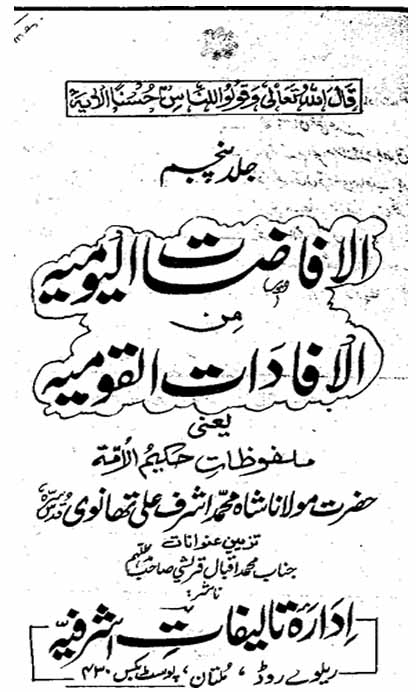 قال اللہ تعالیٰ وقولوا للناس حسنا الآیہ
جلد پنجم
الافاضات الیومیہ
من
الافادات القومیہ
یعنی
ملفوظات حکیم الامۃ
حضرت مولانا شاہ محمد اشرف علی تھانوی قدس سرہٗ
تزیین عنوانات
جناب محمد اقبال قریشی صاحب مدظلہم
ناشر:
ادارۂ تالیفات اشرفیہ
ریلوے روڈ، ملتان، پوسٹ بکس ۴۳۰